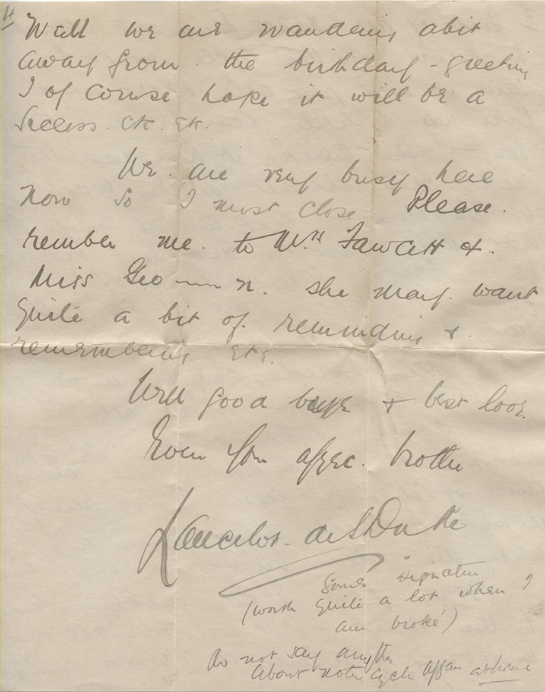 Well we are wandering a bit
away from the birthday-greeting
I of course hope it will be a
Success. etc. etc.
We are very busy here
now so I must close. Please.
remember me. to Mrs Fawcett &
Miss Geo n. she may want
quite a bit of reminding &
remembering etc.
Well good bye & best love
From your affec. brother
Lancelot
Some signature
(worth quite a lot when I
am broke)
Do not say anything
about motor cycle affair at home